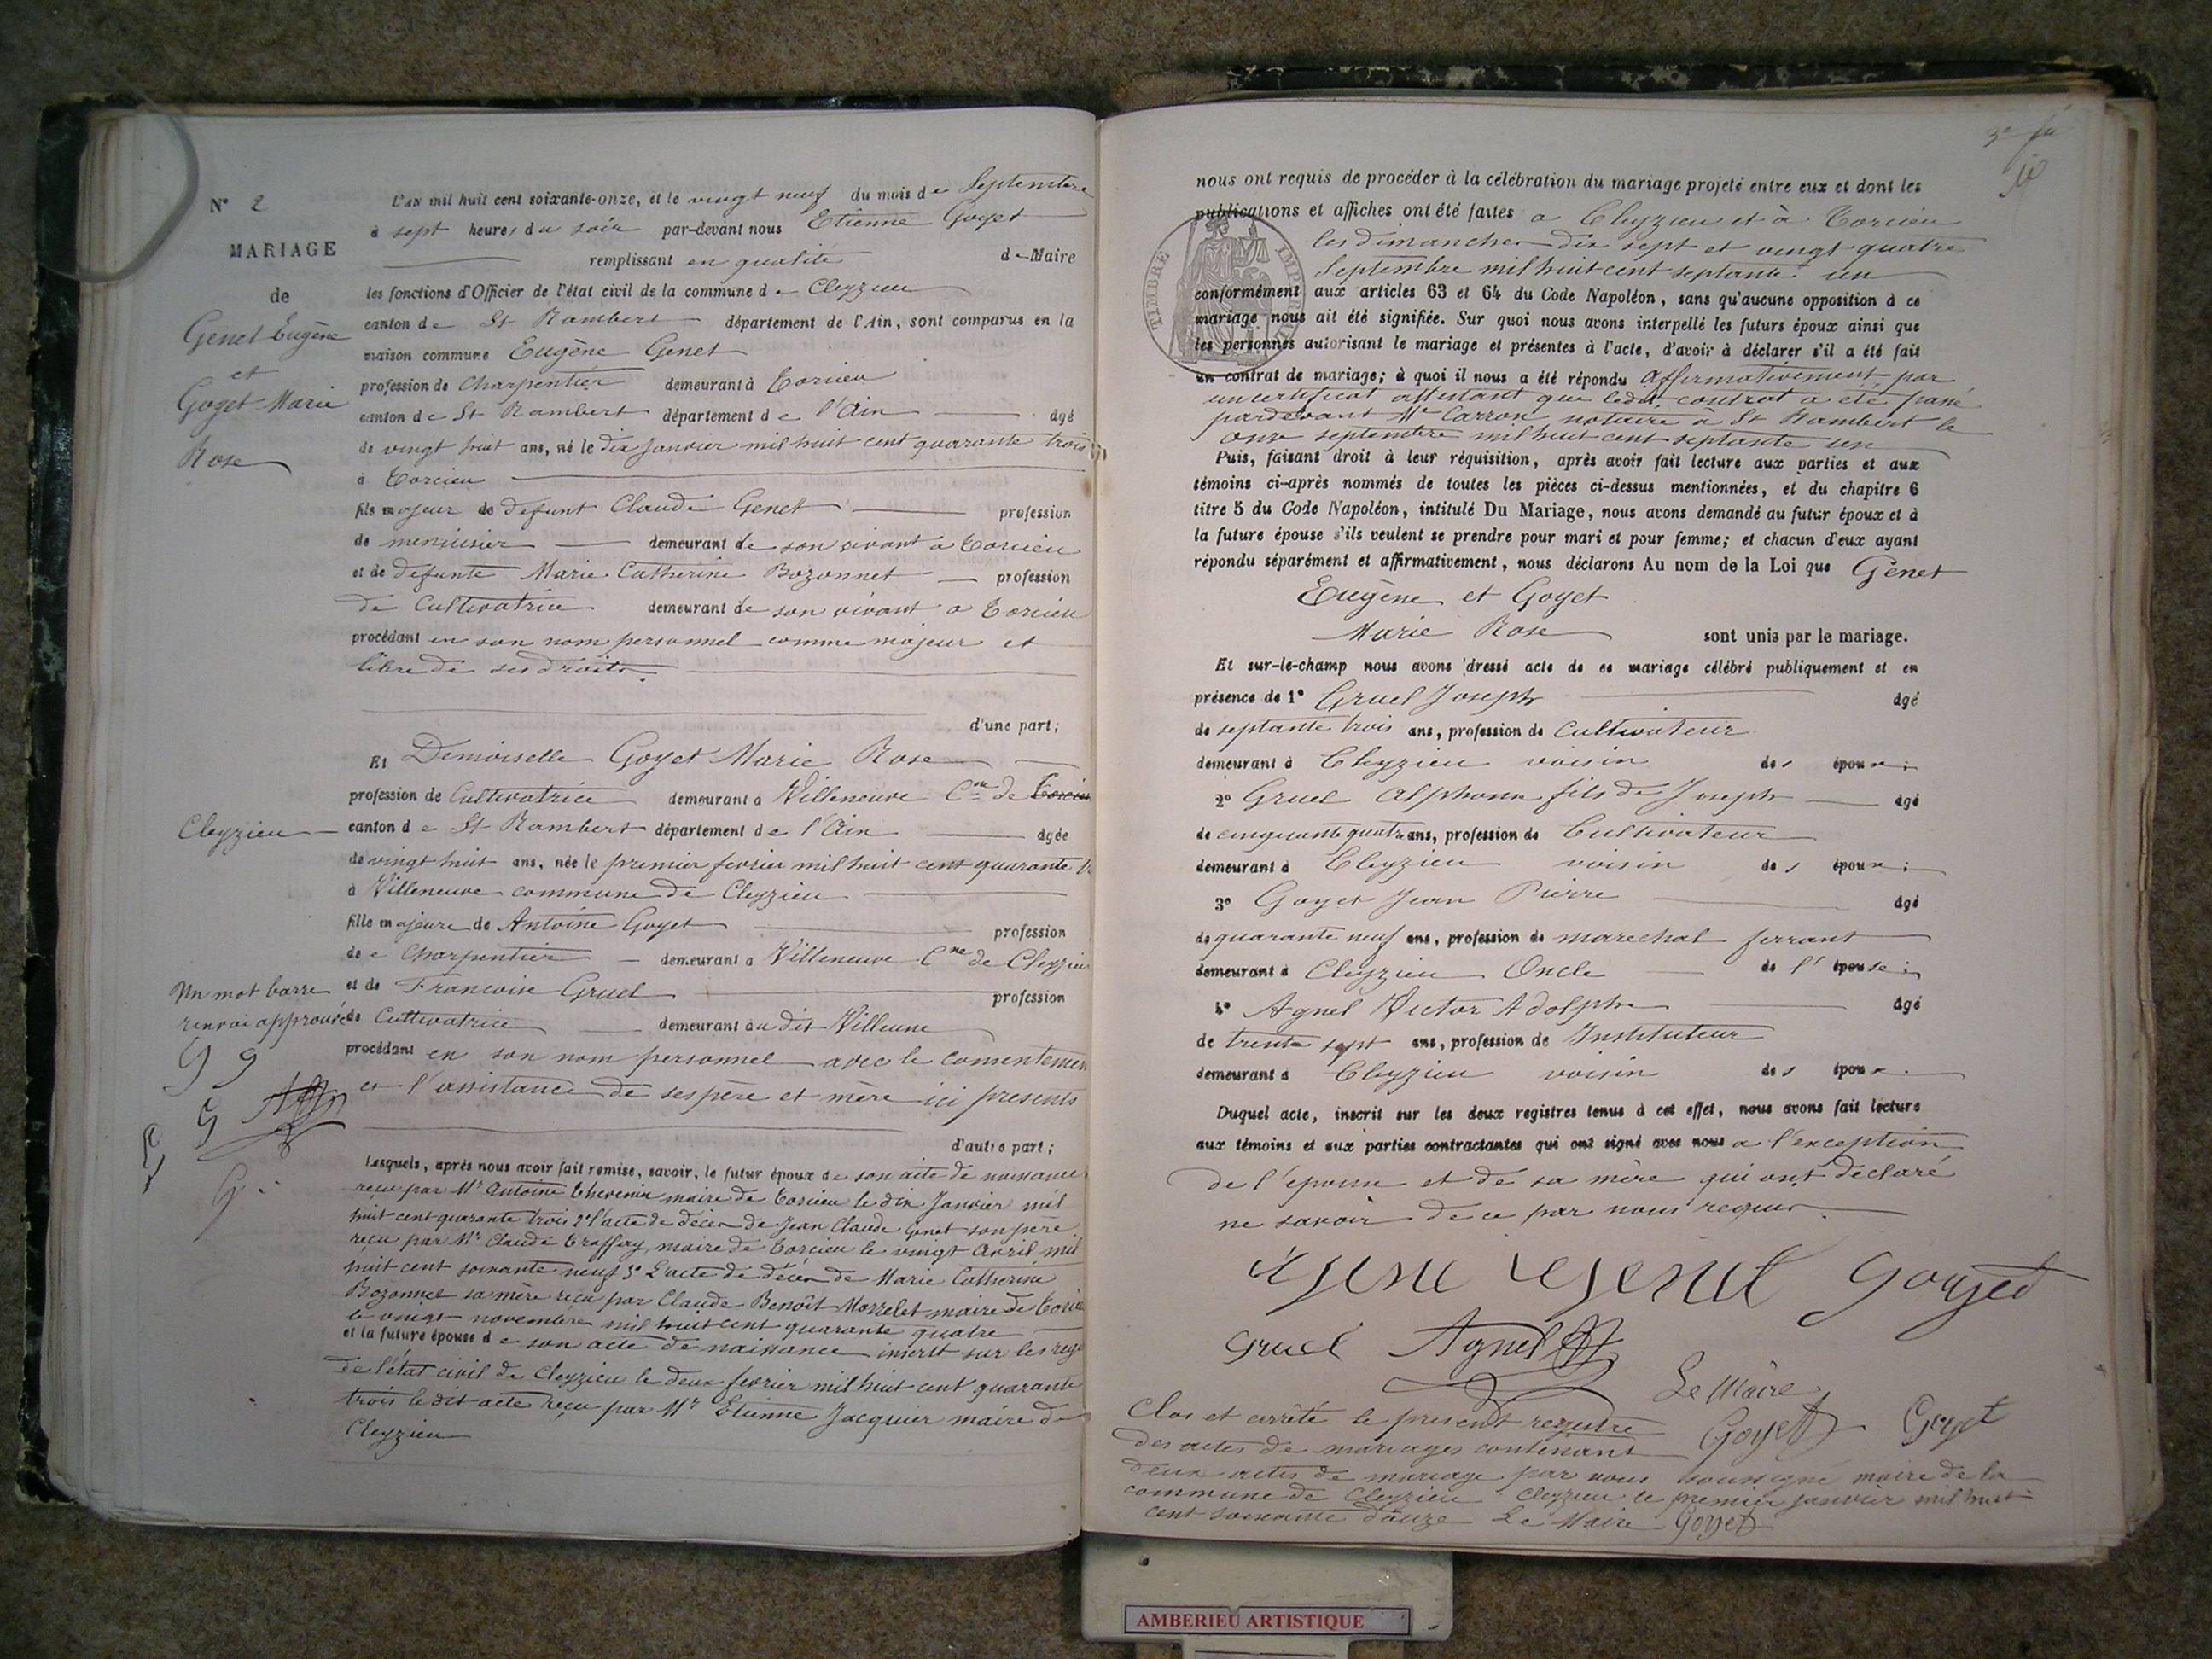 N° 2
MARIAGE
de
Genet Eugène
et
Goyet Marie
Rose
L'AN mil huit cent soixante-onze, et le vingt neuf du mois de Septembre
à sept heures du soir par-devant nous Etienne Goyet
remplissant en qualité de Maire
les fonctions d'Officier de l'état civil de la commune de Cleyzieu
canton de St Rambert département de l'Ain, sont comparus en la
maison commune Eugène Genet
profession de Charpentier demeurant à Torcieu
canton de St Rambert département de l'Ain âgé
de vingt huit ans, né le dix Janvier mil huit cent quarante trois
à Torcieu
fils majeur de defunt Claude Genet profession
de menuisier demeurant de son vivant à Torcieu
et de defunte Marie Catherine Bozonnet profession
de Cultivatrice demeurant de son vivant a Torcieu
procédant en son nom personnel comme majeur et
libre de ses droits.
d'une part;
Et Demoiselle Goyet Marie Rose
profession de Cultivatrice demeurant à Villeneuve Cne de Torcieu
Cleyzieu
canton de St Rambert département de l'Ain âgée
de vingt huit ans, née le premier fevrier mil huit cent quarante
à Villeneuve commune de Cleyzieu
fille majeure de Antoine Goyet profession
de Charpentier demeurant a Villeneuve Cne de Cleyzieu
Un mot barre
renvoi approuvé
et de Francoise Gruel profession
de Cultivatrice demeurant au dit Villeune
procédant en son nom personnel avec le consentemen
et l'assistance de ses père et mère ici presents
G G
G
G.
d'autre part;
Lesquels, après nous avoir fait remise, savoir, le futur époux de son acte de naissance
reçu par Mr Antoine Thevenin maire de Torcieu le dix Janvier mil
huit cent quarante trois 2° l'acte de décès de Jean Claude Genet son père
reçu par Mr Claude Traffay maire de Torcieu le vingt Avril mil
huit cent soixante neuf 3° L'acte de décès de Marie Catherine
Bozonnet sa mère reçu par Claude Benoît Morrelet maire de Torcieu
le vingt novembre mil huit cent quarante quatre
et la future épouse de son acte de naissance inscrit sur les reg
de l'état civil de Cleyzieu le deux fevrier mil huit cent quarante
trois le dit acte reçu par Mr Etienne Jacquier maire de
Cleyzieu
nous ont requis de procéder à la célébration du mariage projeté entre eux et dont les
publications et affiches ont été faites a Cleyzieu et à Torcieu
les dimanches dix sept et vingt quatre
Septembre mil huit cent septante un
TIMBRE IMPERIAL
conformément aux articles 63 et 64 du Code Napoléon, sans qu'aucune opposition à ce
mariage nous ait été signifiée. Sur quoi nous avons interpellé les futurs époux ainsi que
les personnes autorisant le mariage et présentes à l'acte, d'avoir à déclarer s'il a été fait
un contrat de mariage; à quoi il nous a été répondu affirmativement par
un certificat attestant que ledit contrat a été passé
pardevant Me Carron notaire à St Rambert le
onze septembre mil huit cent septante un
Puis, faisant droit à leur réquisition, après avoir fait lecture aux parties et aux
témoins ci-après nommés de toutes les pièces ci-dessus mentionnées, et du chapitre 6
titre 5 du Code Napoléon, intitulé Du Mariage, nous avons demandé au futur époux et à
la future épouse s'ils veulent se prendre pour mari et pour femme; et chacun d'eux ayant
répondu séparément et affirmativement, nous déclarons Au nom de la Loi que Genet
Eugène et Goyet
Marie Rose sont unis par le mariage.
Et sur-le-champ nous avons dressé acte de ce mariage célébré publiquement et en
présence de 1° Gruel Joseph âgé
de septante trois ans, profession de Cultivateur
demeurant à Cleyzieu voisin des époux;
2° Gruel Alphonse fils de Joseph âgé
de cinquante quatre ans, profession de Cultivateur
demeurant à Cleyzieu voisin des époux;
3° Goyet Jean Pierre âgé
de quarante neuf ans, profession de marechal ferrant
demeurant à Cleyzieu Oncle de l'épouse;
4° Agnel Victor Adolphe âgé
de trente sept ans, profession de Instituteur
demeurant à Cleyzieu voisin des époux.
Duquel acte, inscrit sur les deux registres tenus à cet effet, nous avons fait lecture
aux témoins et aux parties contractantes qui ont signé avec nous a l'exception
de l'épouse et de sa mère qui ont declaré
ne savoir de ce par nous requis.
Genet Goyet
Gruel Agnel
Le Maire
Goyet Goyet
Clos et arrêté le present registre
des actes de mariages contenant
deux actes de mariage par nous soussigné maire de la
commune de Cleyzieu Cleyzieu le premier janvier mil huit
cent soixante douze Le Maire Goyet
AMBERIEU ARTISTIQUE